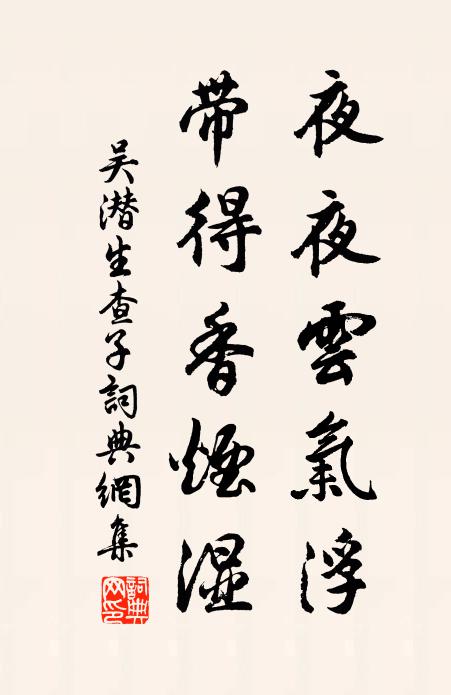 夜夜雲氣浮
带得香煙湿
吴潜生查子詞典網集
詞典网印